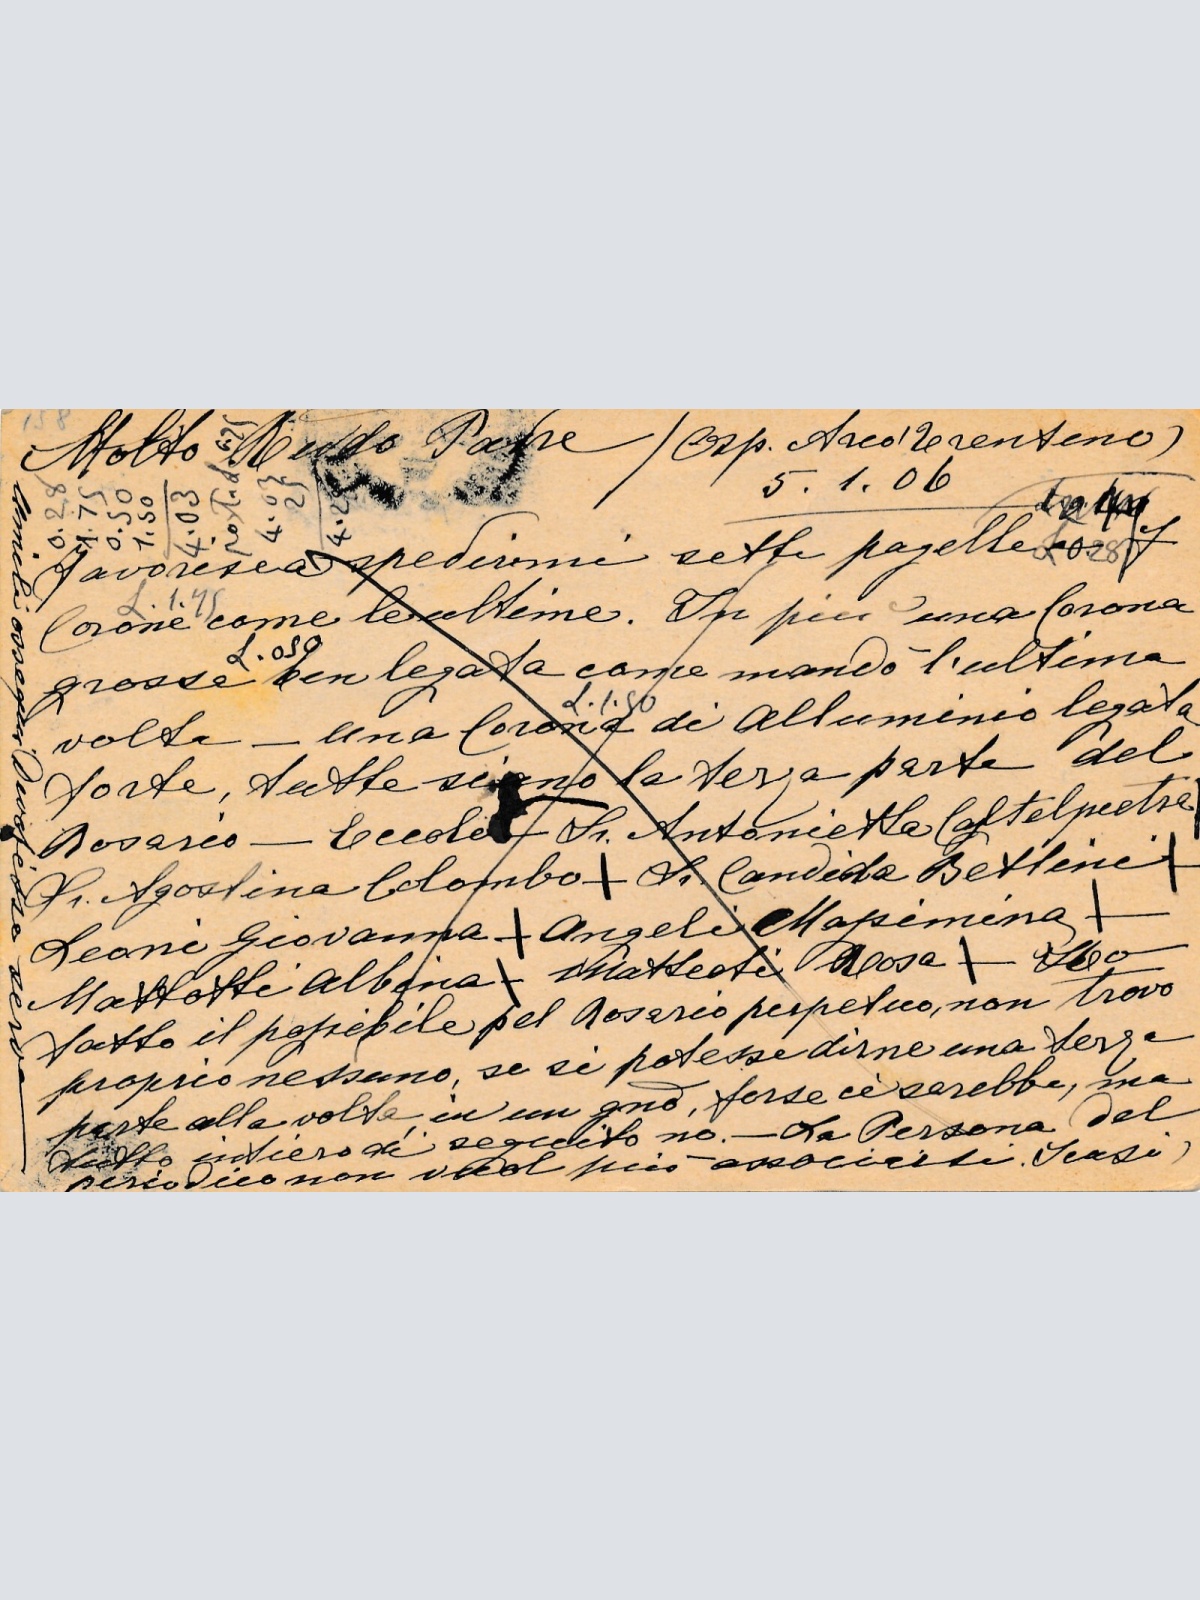 158
Molto Rndo Padre (Osp. Arco Trentino)
5. 1. 06
Favorisca spedirmi sette pagelle 7
L. 1.75
Corone come le ultime. In più una Corona
L. 0.50
grossa ben legata come mandò l'ultima
L. 1.50
volta — una Corona di Alluminio legata
forte, tutte siano la terza parte del
Rosario — Eccole — Sr. Antonietta Castelpietra
Sr. Agostina Colombo + Sr. Candida Bettini +
Leoni Giovanna + Angeli Massimina + —
Mattotti Albina + Matteoti Rosa + — Ho
fatto il possibile pel Rosario perpetuo, non trovo
proprio nessuno, se si potesse dirne una terza
parte alla volta, in un gno, forse ci sarebbe, ma
tutto intiero di seguito no. — La Persona del
periodico non vuol più associarsi. Scusi)
Umili ossequi Devot serva
0.28
1.75
0.50
1.50
4.03
4.03
25
4.28